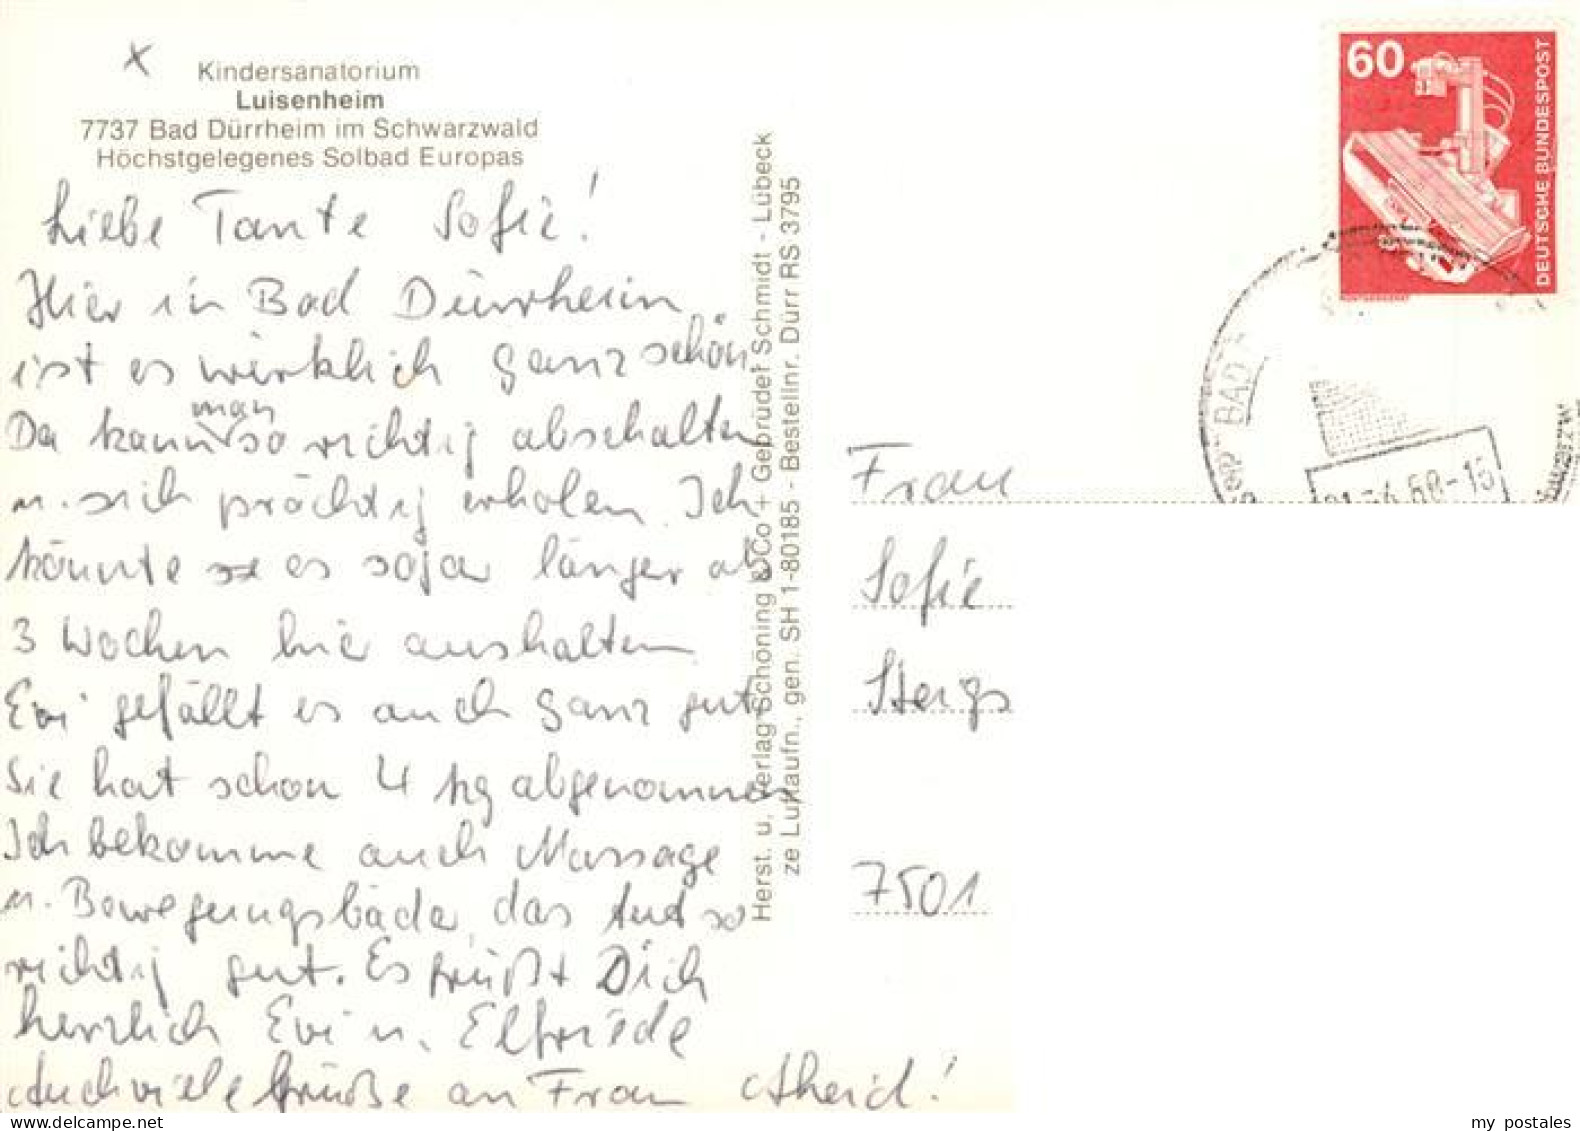 Kindersanatorium
Luisenheim
7737 Bad Dürrheim im Schwarzwald
Höchstgelegenes Solbad Europas
Liebe Tante Sofie!
Hier in Bad Dürrheim
ist es wirklich ganz schön
Da kann man so richtig abschalten
u. sich prächtig erholen. Ich
könnte es sogar länger als
3 Wochen hie aushalten
Evi gefällt es auch ganz gut
Sie hat schon 4 kg abgenommen
Ich bekomme auch Massage
u. Bewegungsbäder, das tut so
richtig gut. Es grüßt Dich
herzlich Evi u. Elfriede
Auch viele Grüße an Frau
Herst. u. Verlag Schöning & Co + Gebrüder Schmidt - Lübeck
ze Luftaufn., gen. SH 1-80185 - Bestellnr. Dürr RS 3795
60
DEUTSCHE BUNDESPOST
BAD
Frau
Sofie
Stergs
7501
my postales